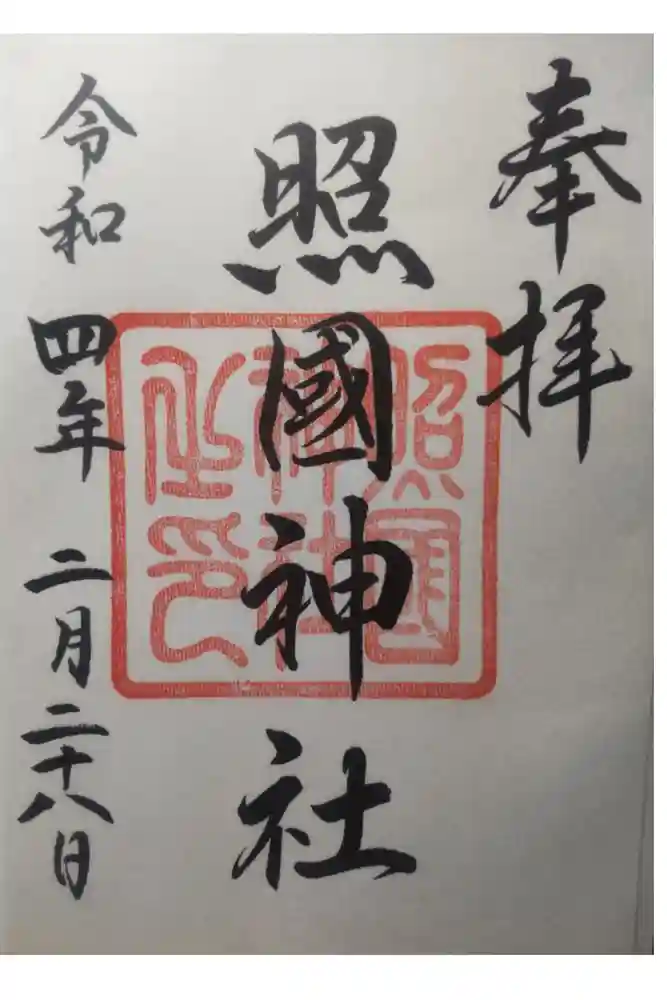 奉拝
照國神社
照国神社之印
令和四年二月二十八日